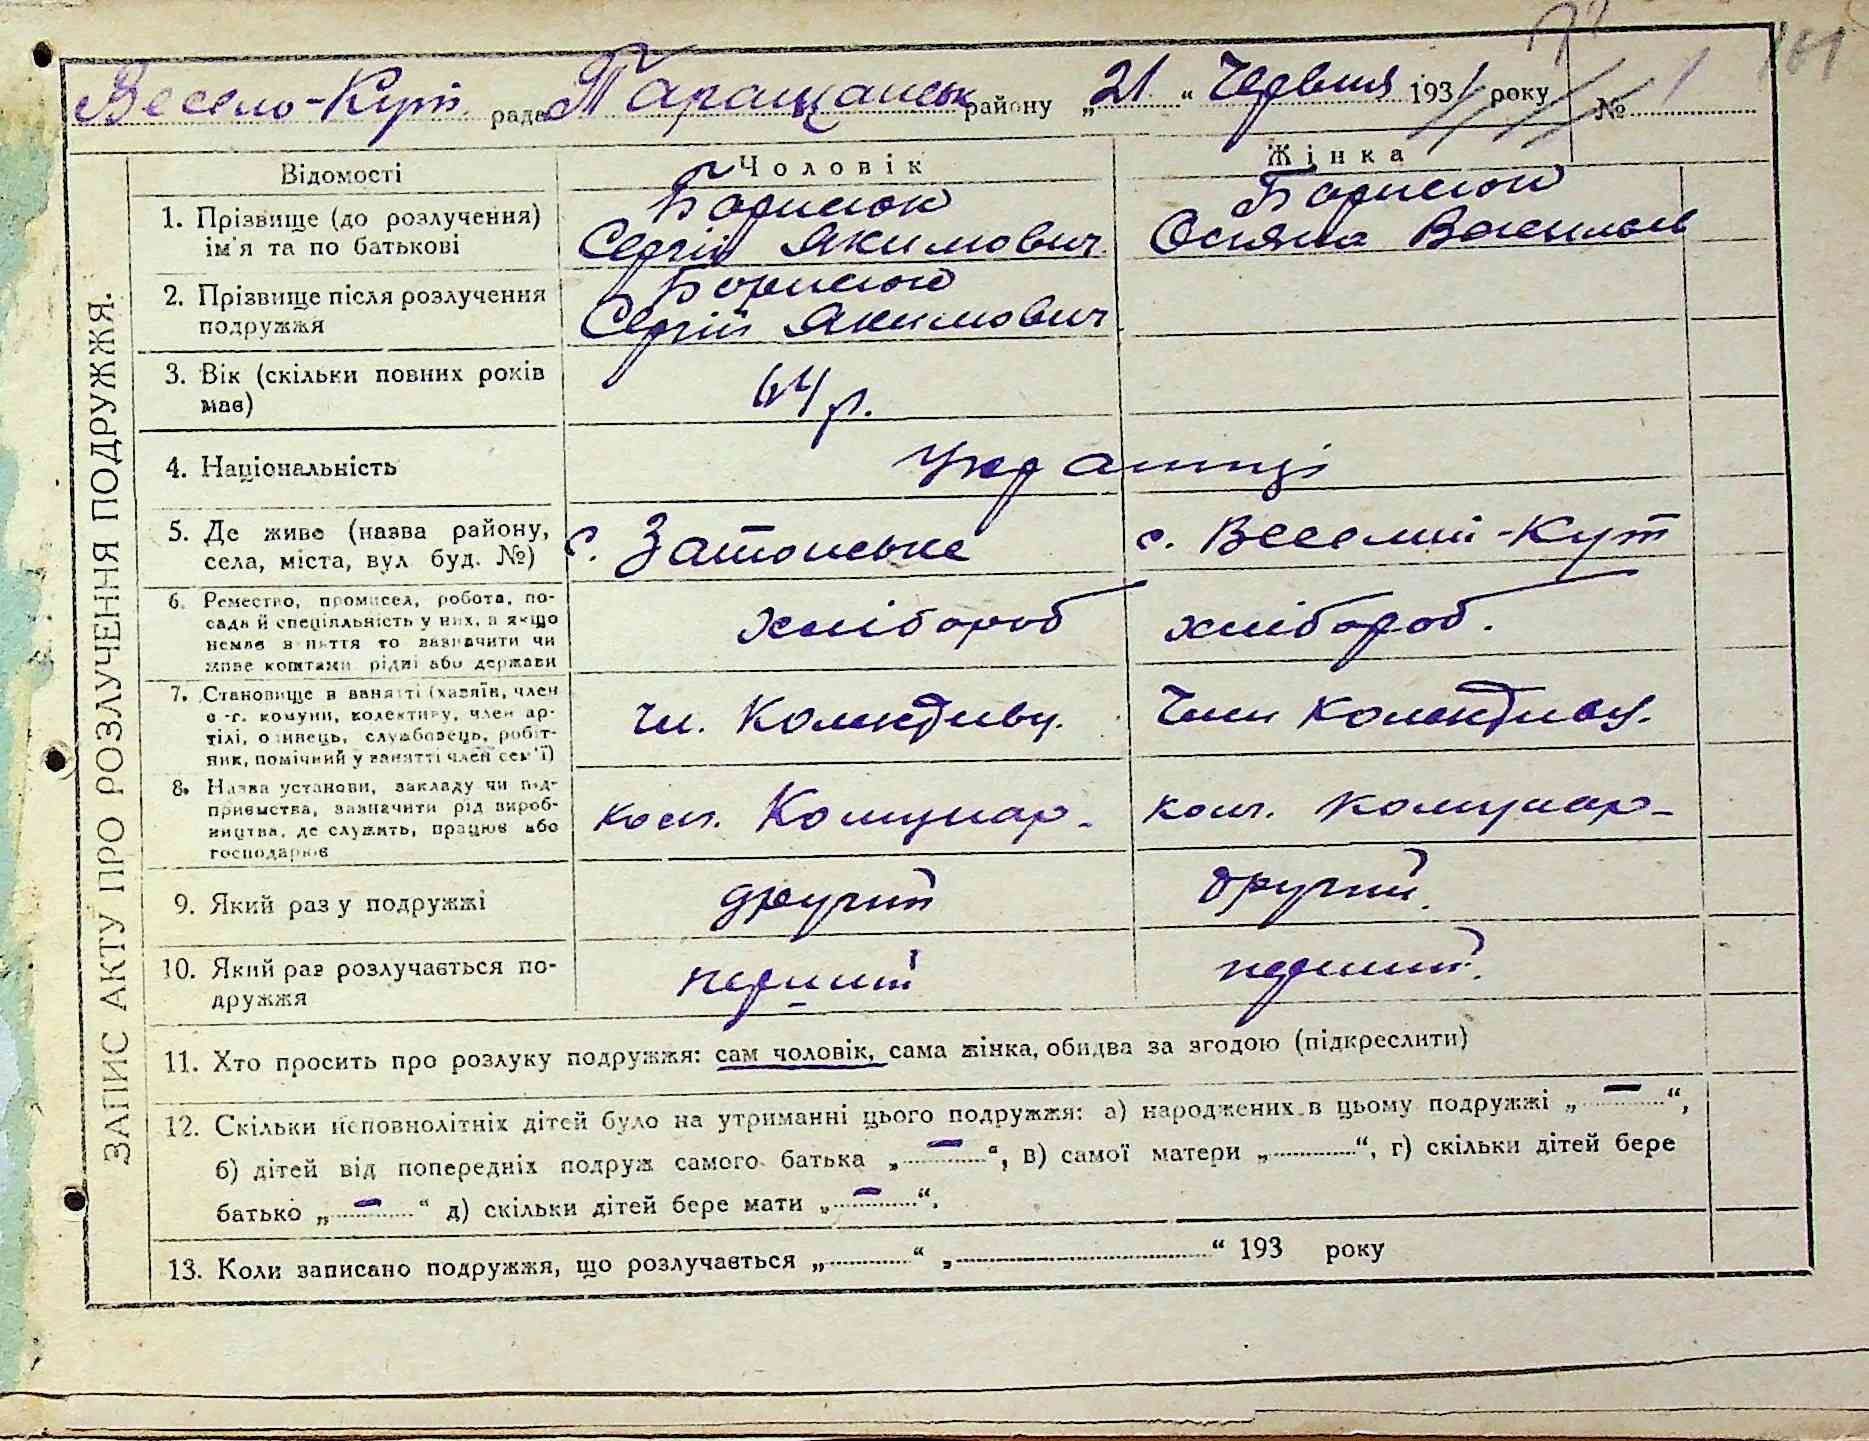 161
Весело-Кут. рада Таращанськ району „21“ Червня 1931 року № 1
ЗАПИС АКТУ ПРО РОЗЛУЧЕННЯ ПОДРУЖЖЯ.
Відомості Чоловік Жінка
1. Прізвище (до розлучення) Борисюк Борисюк
ім'я та по батькові Сергій Якимович Васильев
2. Прізвище після розлучення Борисюк
подружжя Сергій Якимович
3. Вік (скільки повних років
має) 64 р.
4. Національність Українці
5. Де живе (назва району,
села, міста, вул буд. №) с. Затонське с. Веселий-Кут
6. Ремество, промисел, робота, по-
сада й спеціяльність у них, а якщо
немає заняття то зазначити чи хлібороб хлібороб.
живе коштами рідні або держави
7. Становище в занятті (хазяїн, член
с.-г. комуни, колективу, член ар- чл. Колективу. Член Колективу.
тілі, одинець, службовець, робіт-
ник, помічний у занятті член сем'ї)
8. Назва установи, закладу чи під-
приємства, зазначити рід вироб- Комунар- Комунар-
ництва, де служить, працює або
господарює
9. Який раз у подружжі другий другий.
10. Який раз розлучається по- перший перший.
дружжя
11. Хто просить про розлуку подружжя: сам чоловік, сама жінка, обидва за згодою (підкреслити)
12. Скільки неповнолітніх дітей було на утриманні цього подружжя: а) народжених в цьому подружжі „ — “,
б) дітей від попередніх подруж самого батька „ — “, в) самої матери „ “, г) скільки дітей бере
батько „ — “ д) скільки дітей бере мати „ — “.
13. Коли записано подружжя, що розлучається „ “ „ “ 193 року